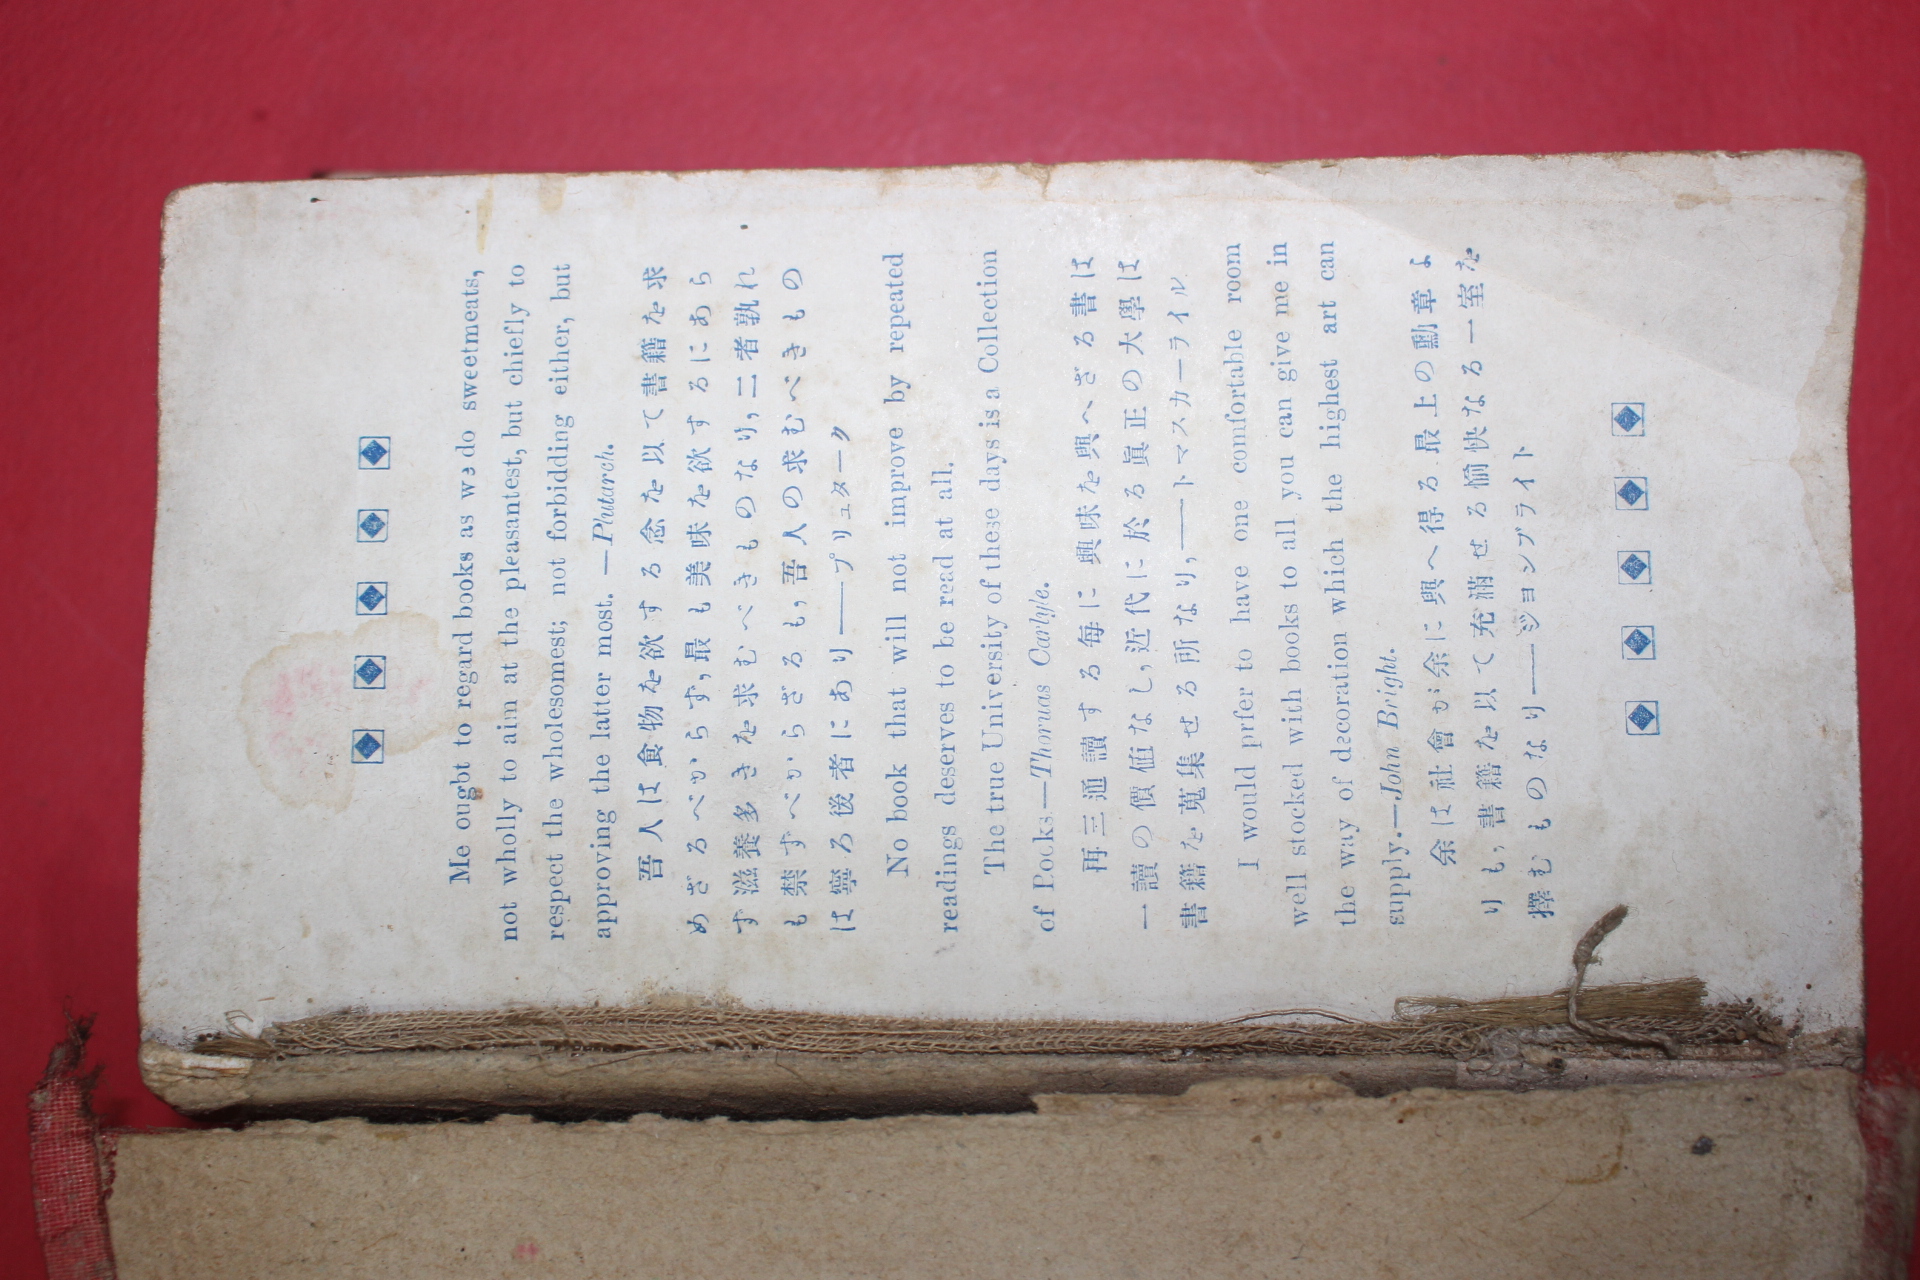 Me ought to regard books as we do sweetmeats,
not wholly to aim at the pleasantest, but chiefly to
respect the wholesomest; not forbidding either, but
approving the latter most. —Plutarch.
吾人は食物を欲する念を以て書籍を求
めざるべからず，最も美味を欲するにあら
ず滋養多きを求むべきものなり，二者孰れ
も禁ずべからざるも，吾人の求むべきもの
は寧ろ後者にあり——プリュターク
No book that will not improve by repeated
readings deserves to be read at all.
The true University of these days is a Collection
of Pooks.—Thoruas Carlyle.
再三通讀する毎に興味を興へざる書は
一讀の價値なし，近代に於る眞正の大學は
書籍を蒐集せる所なり，——トマスカーライル
I would prfer to have one comfortable room
well stocked with books to all you can give me in
the way of decoration which the highest art can
supply.—John Bright.
余は社會が余に興へ得る最上の勳章よ
りも，書籍を以て充滿せる愉快なる一室を
擇むものなり——ジョンブライト